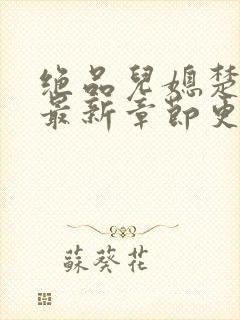 绝品兒媳楚
最新章節更
蘇葵花